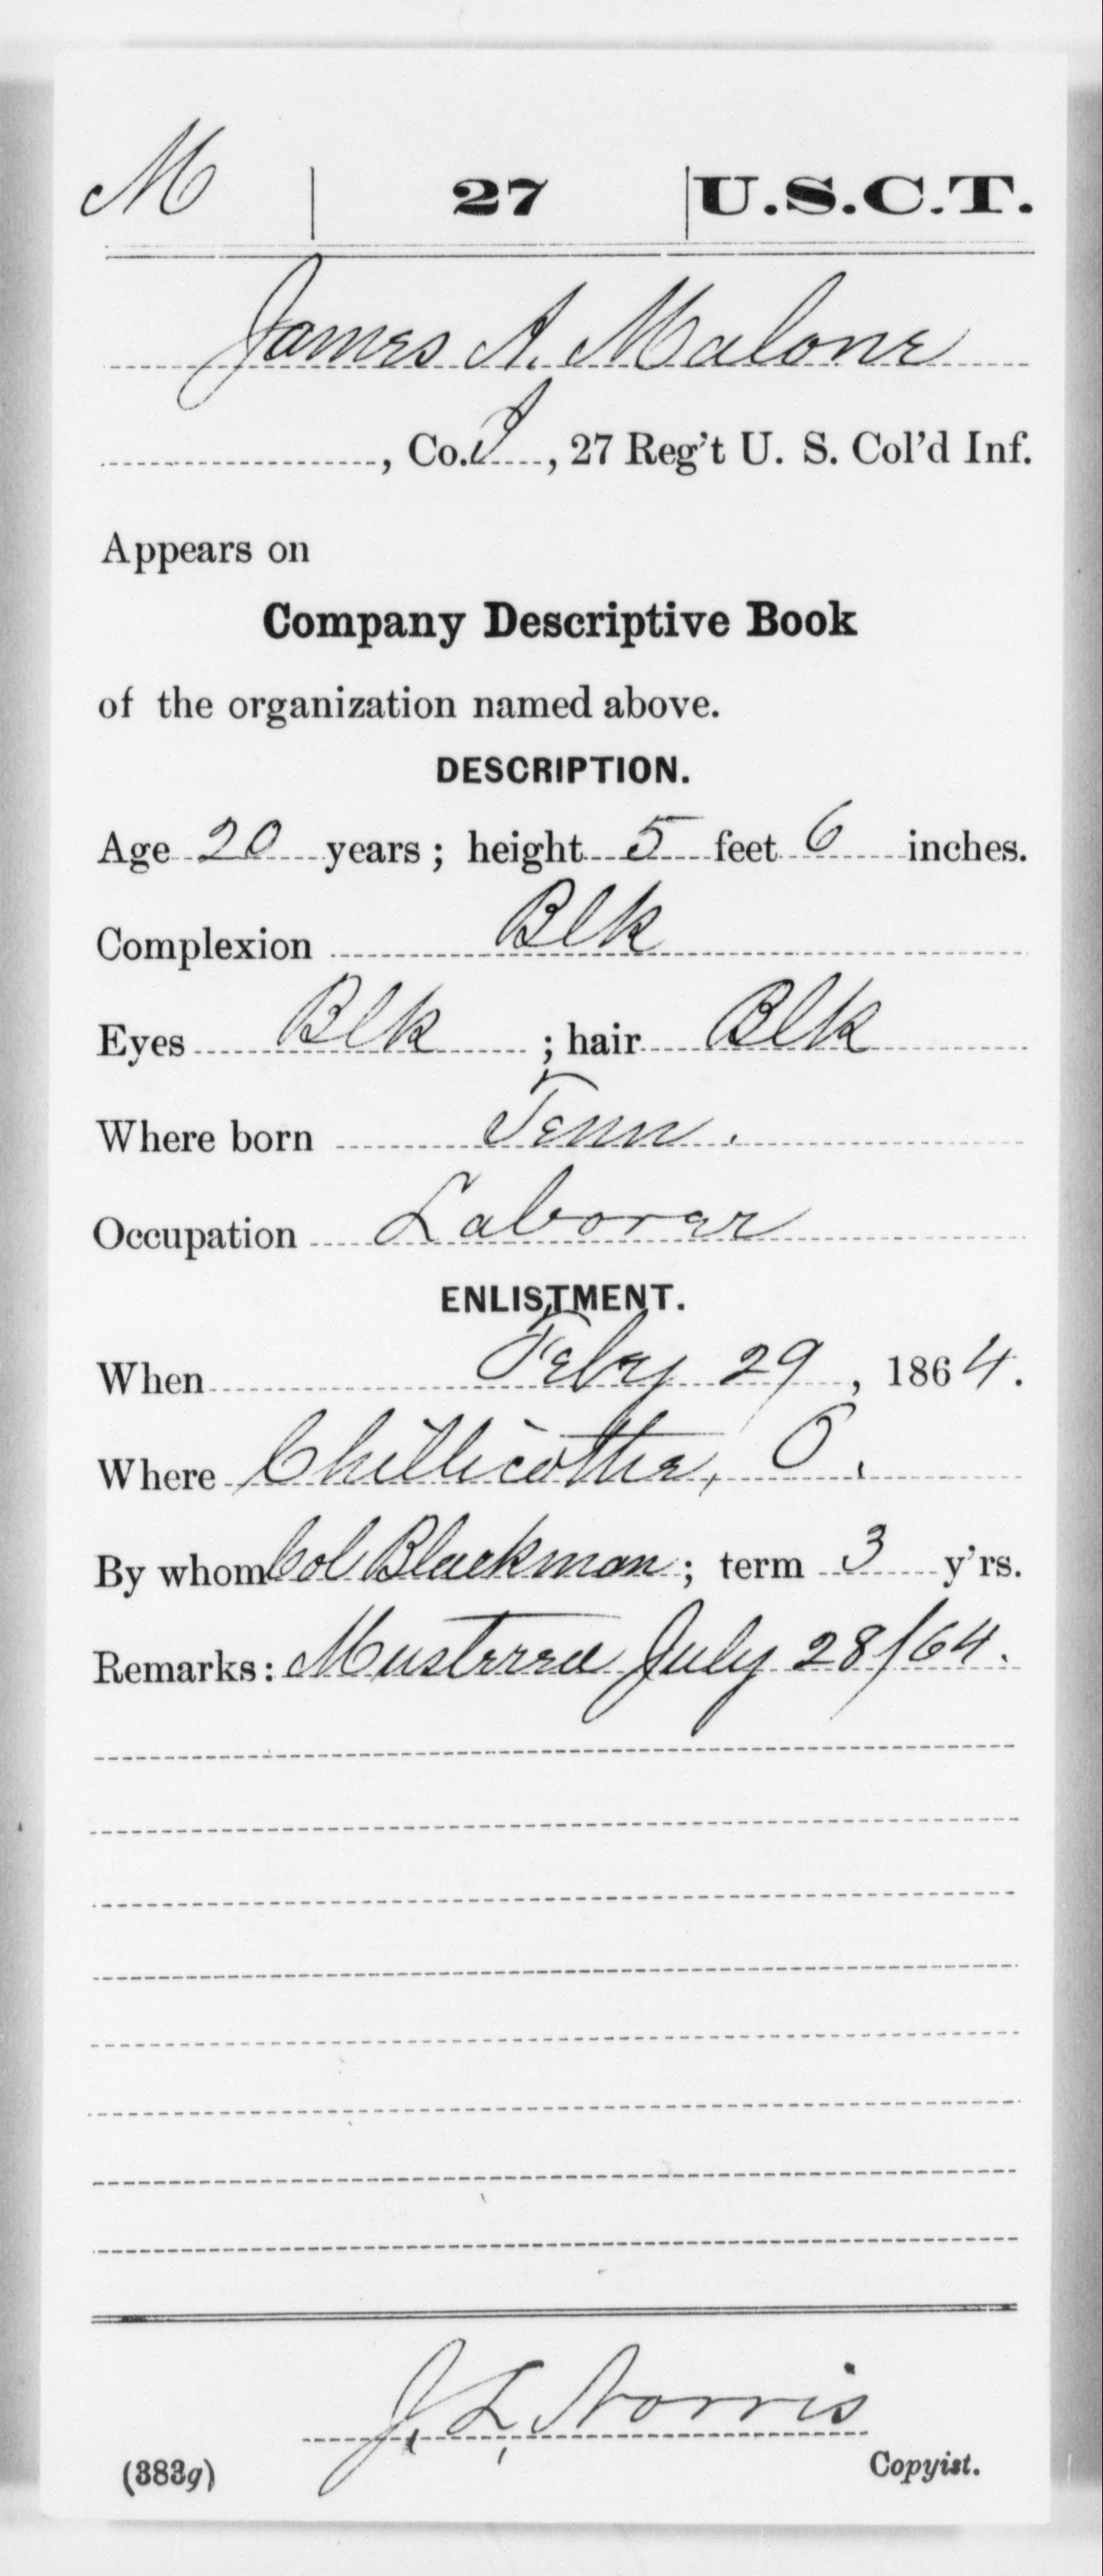 M | 27 | U.S.C.T.
James A. Malone
, Co. I, 27 Reg't U. S. Col'd Inf.
Appears on
Company Descriptive Book
of the organization named above.
DESCRIPTION.
Age 20 years; height 5 feet 6 inches.
Complexion Blk
Eyes Blk; hair Blk
Where born Tenn.
Occupation Laborer
ENLISTMENT.
When Feby 29, 1864.
Where Chillicothe, O.
By whom Col Blackman; term 3 y'rs.
Remarks: Mustered July 28/64.
J. L. Norris
(383g) Copyist.